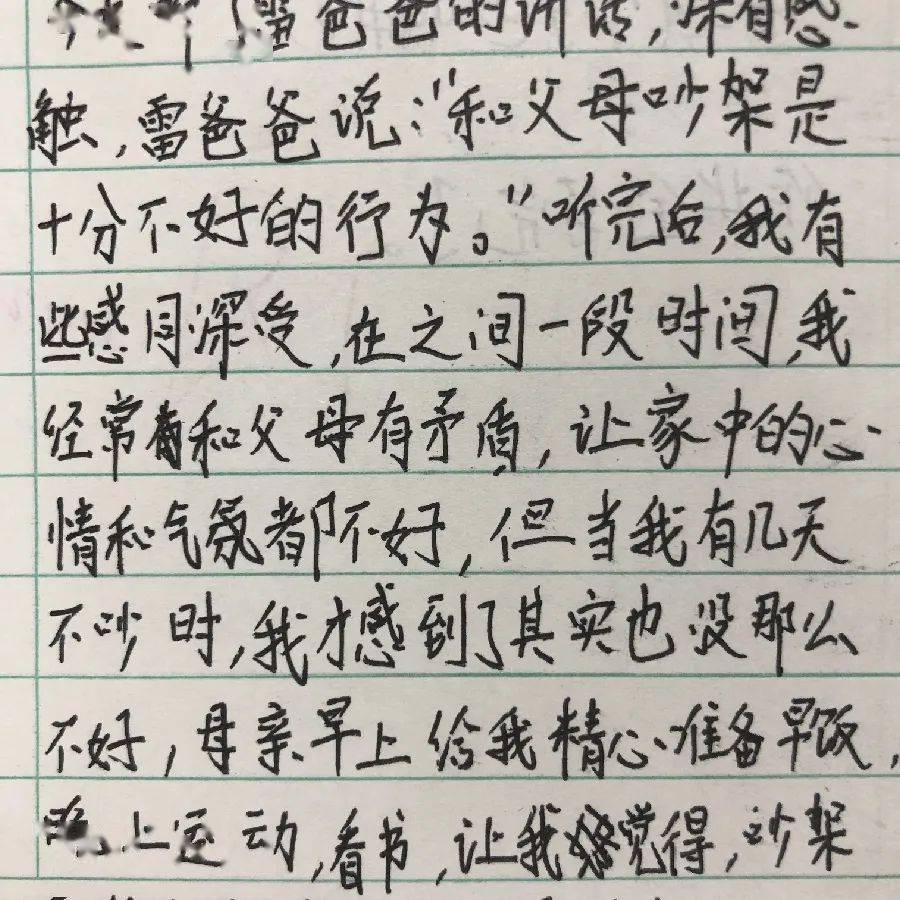 雷爸爸的讲话,深有感
触,雷爸爸说:“和父母吵架是
十分不好的行为。”听完后,我有
些感同深受,在之间一段时间,我
经常和父母有矛盾,让家中的心
情和气氛都不好,但当我有几天
不吵时,我才感到了其实也没那么
不好,母亲早上给我精心准备早饭,
晚上运动,看书,让我觉得,吵架